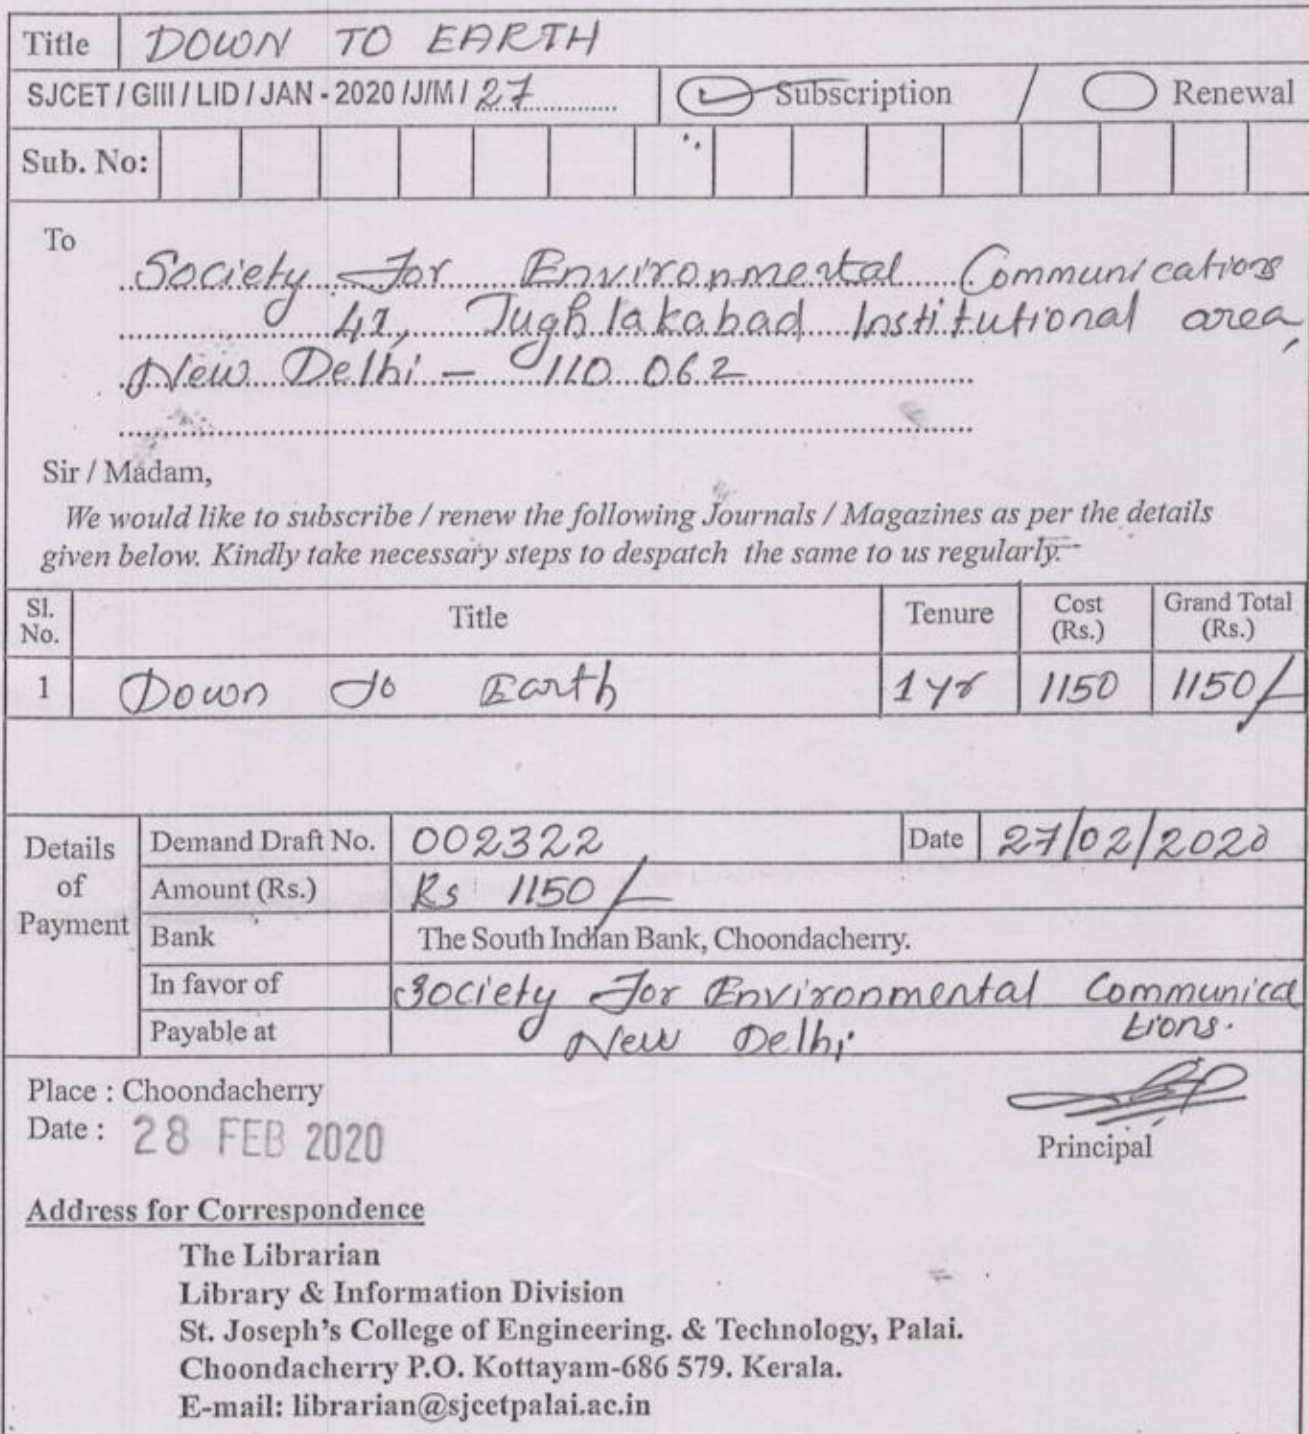 Title DOWN TO EARTH
SJCET / GIII / LID / JAN - 2020 /J/M / 27 Subscription / Renewal
Sub. No:
To
Society For Environmental Communications
41, Tughlakabad Institutional area,
New Delhi - 110 062
Sir / Madam,
We would like to subscribe / renew the following Journals / Magazines as per the details
given below. Kindly take necessary steps to despatch the same to us regularly.
Sl. No. Title Tenure Cost (Rs.) Grand Total (Rs.)
1 Down to Earth 1 yr 1150 1150/-
Details of Payment
Demand Draft No. 002322 Date 27/02/2020
Amount (Rs.) Rs 1150/-
Bank The South Indian Bank, Choondacherry.
In favor of Society For Environmental Communications.
Payable at New Delhi
Place : Choondacherry
Date : 28 FEB 2020
Principal
Address for Correspondence
The Librarian
Library & Information Division
St. Joseph's College of Engineering. & Technology, Palai.
Choondacherry P.O. Kottayam-686 579. Kerala.
E-mail: librarian@sjcetpalai.ac.in